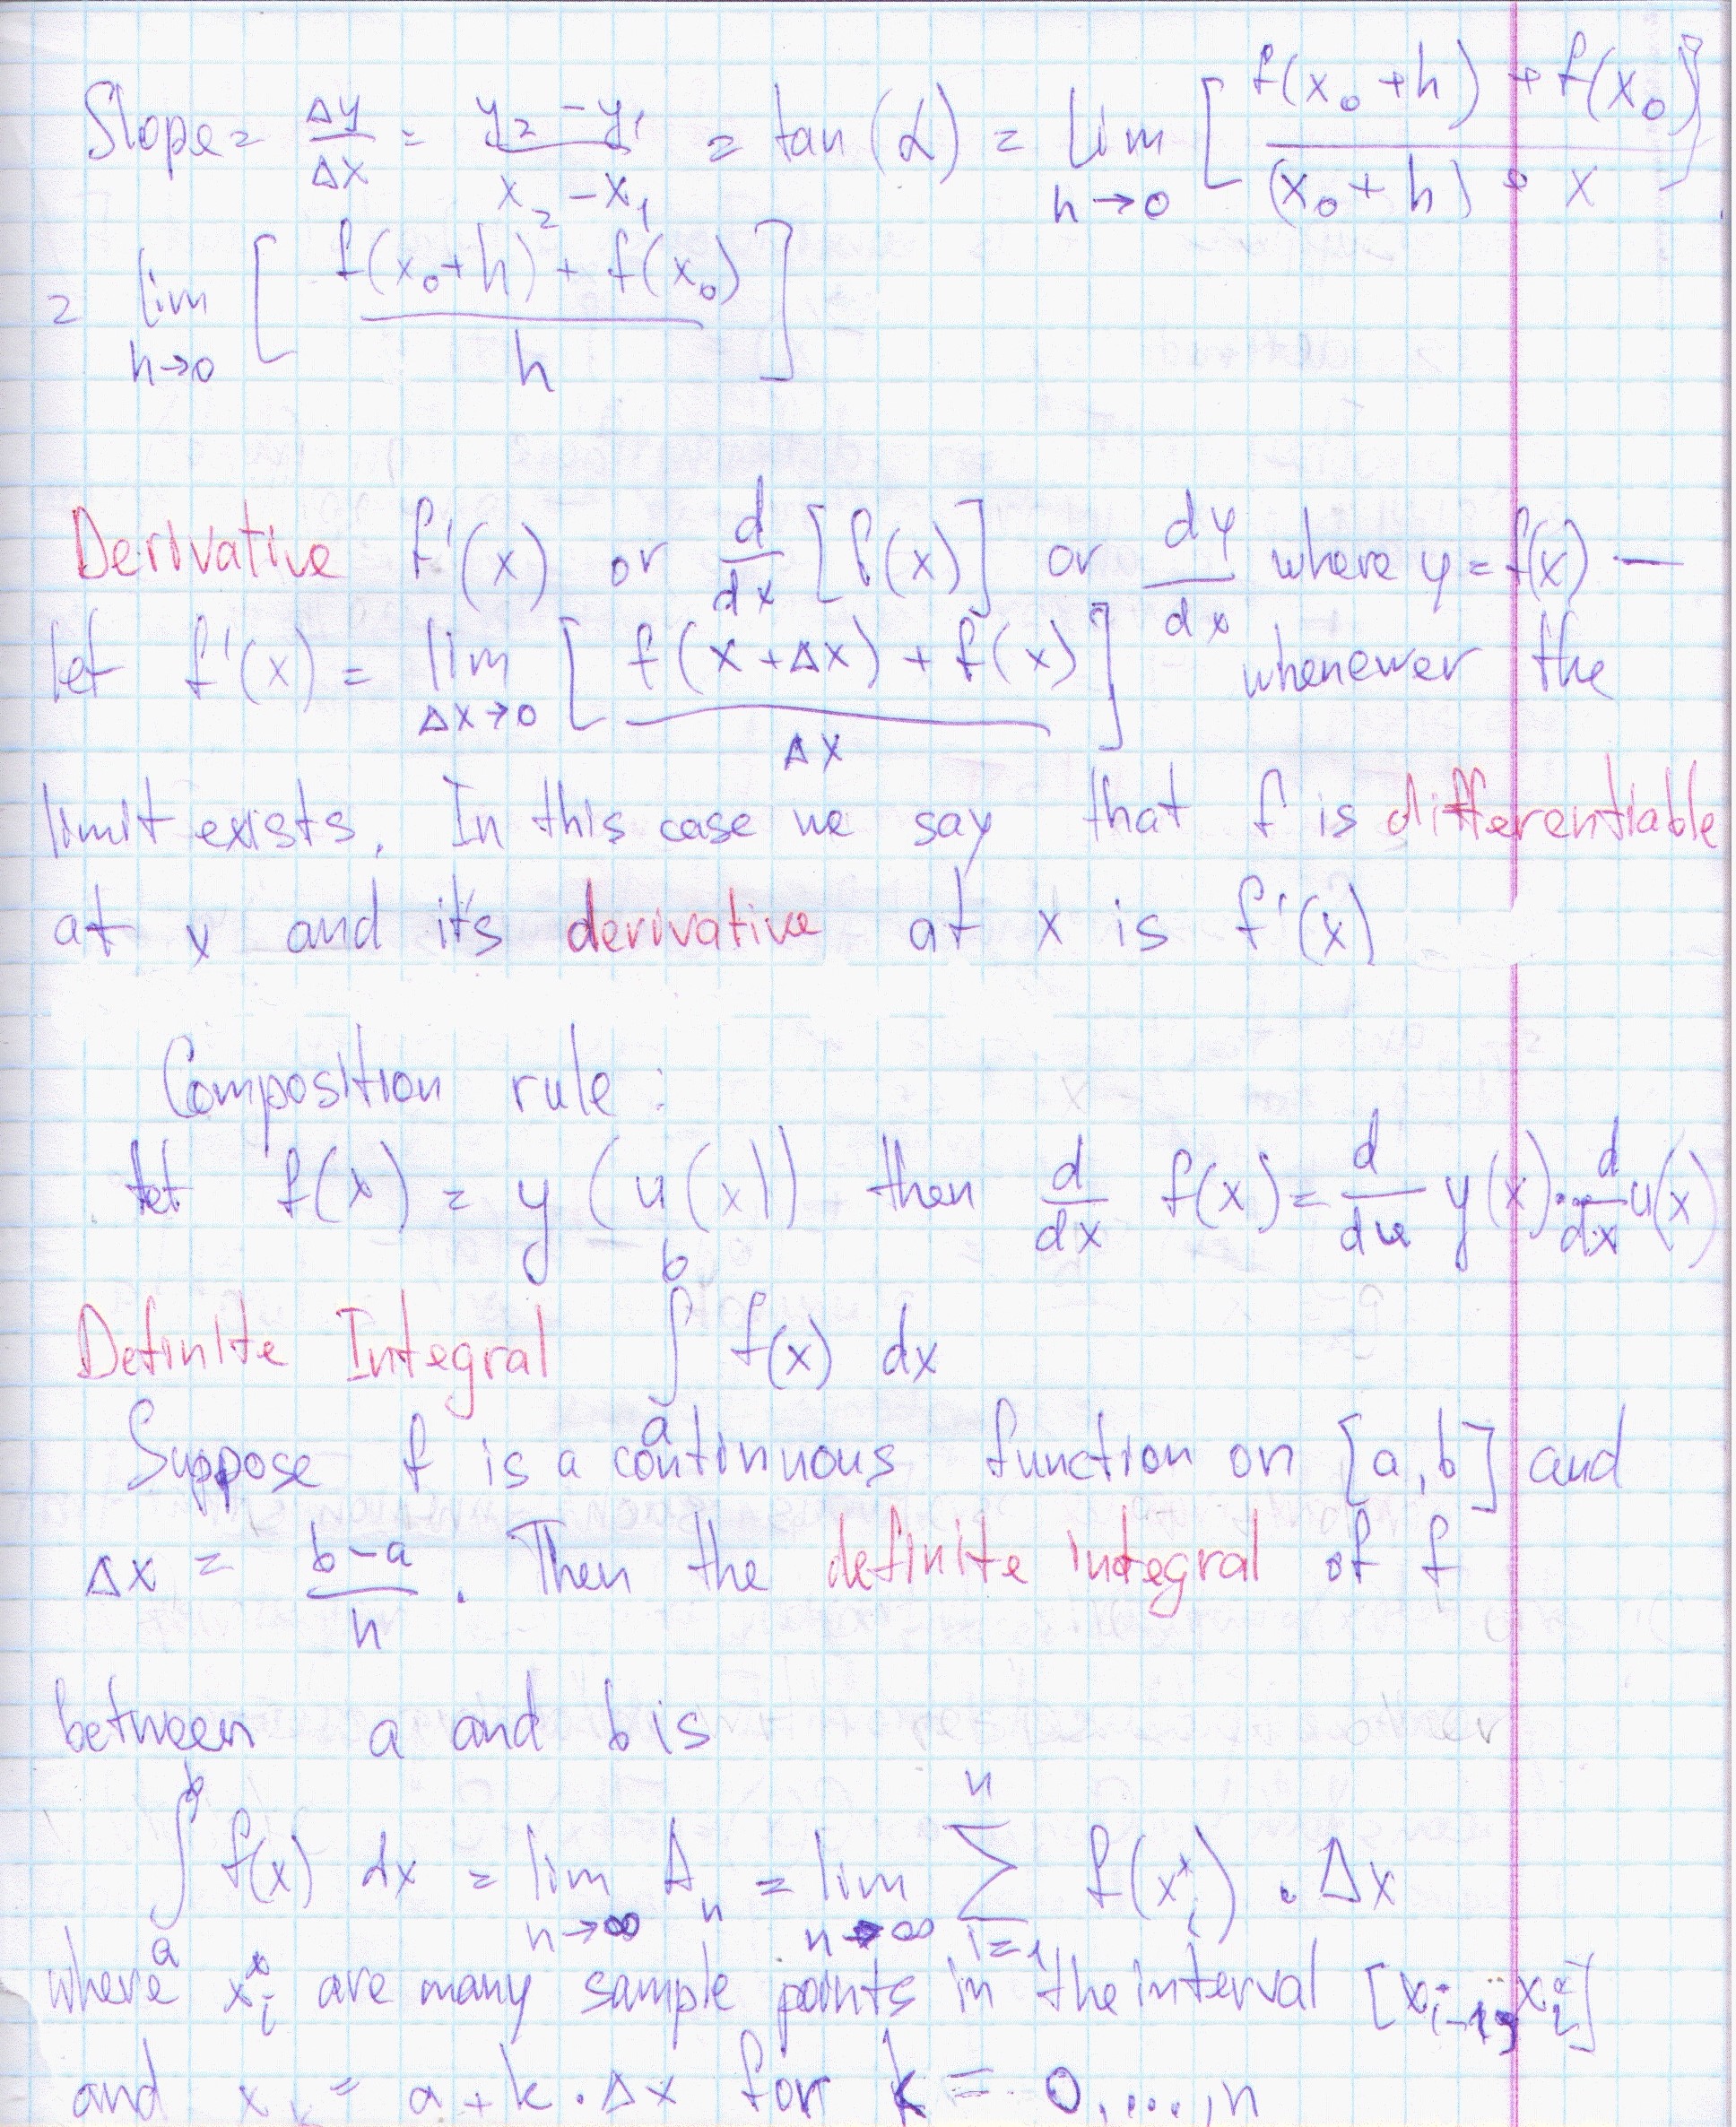 Slope = Δy/Δx = (y₂ - y₁)/(x₂ - x₁) = tan(α) = lim h→0 [(f(x₀ + h) + f(x₀))/((x₀ + h) + x)]
= lim h→0 [(f(x₀+h) + f(x₀))/h]
Derivative f'(x) or d/dx [f(x)] or dy/dx where y = f(x) —
let f'(x) = lim Δx→0 [(f(x + Δx) + f(x))/Δx] whenewer the
limit exists. In this case we say that f is differentiable
at x and it's derivative at x is f'(x)
Composition rule:
let f(x) = y(u(x)) then d/dx f(x) = d/du y(x) · d/dx u(x)
Definite Integral ∫ₐᵇ f(x) dx
Suppose f is a continuous function on [a, b] and
Δx = (b-a)/n. Then the definite integral of f
between a and b is
∫ₐᵇ f(x) dx = lim n→∞ Aₙ = lim n→∞ ∑ i=1 n f(xᵢ*) · Δx
where xᵢ* are many sample points in the interval [xᵢ₋₁, xᵢ]
and xₖ = a + k · Δx for k = 0, ..., n